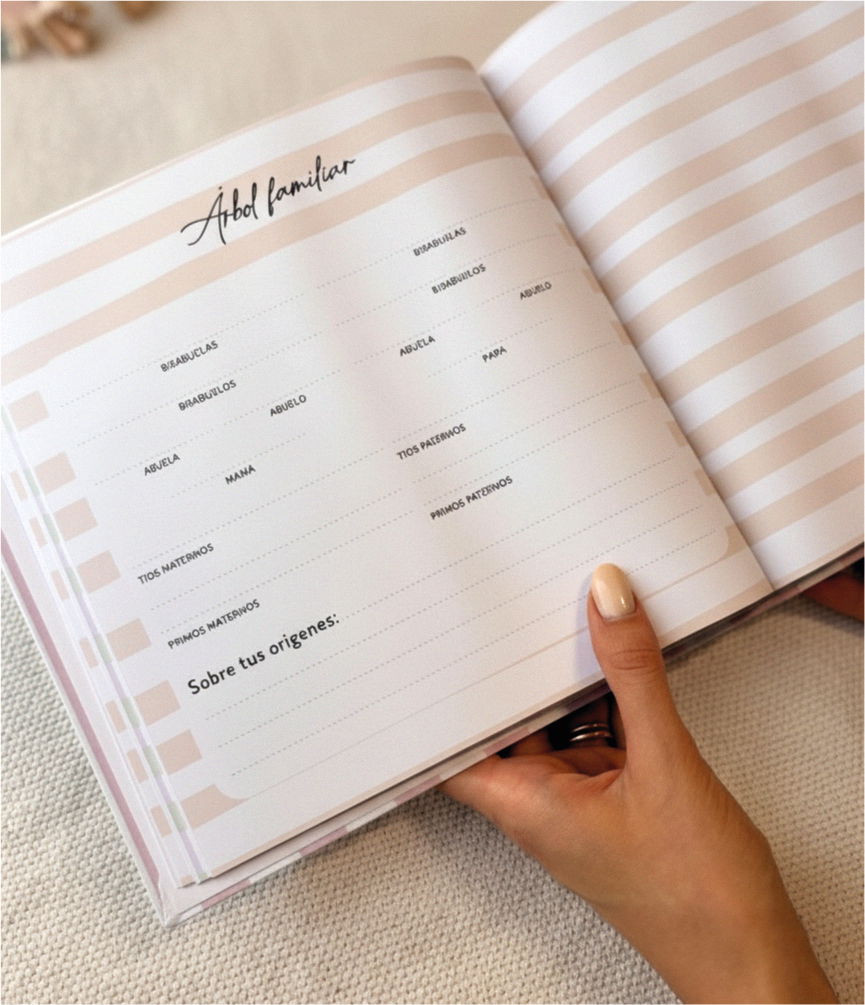 Árbol familiar
BISABUELAS
BISABUELOS
ABUELO
ABUELA
PAPÁ
BISABUELAS
BISABUELOS
ABUELO
ABUELA
MANÁ
TIOS PATERNOS
PRIMOS PATERNOS
TIOS MATERNOS
PRIMOS MATERNOS
Sobre tus origenes: